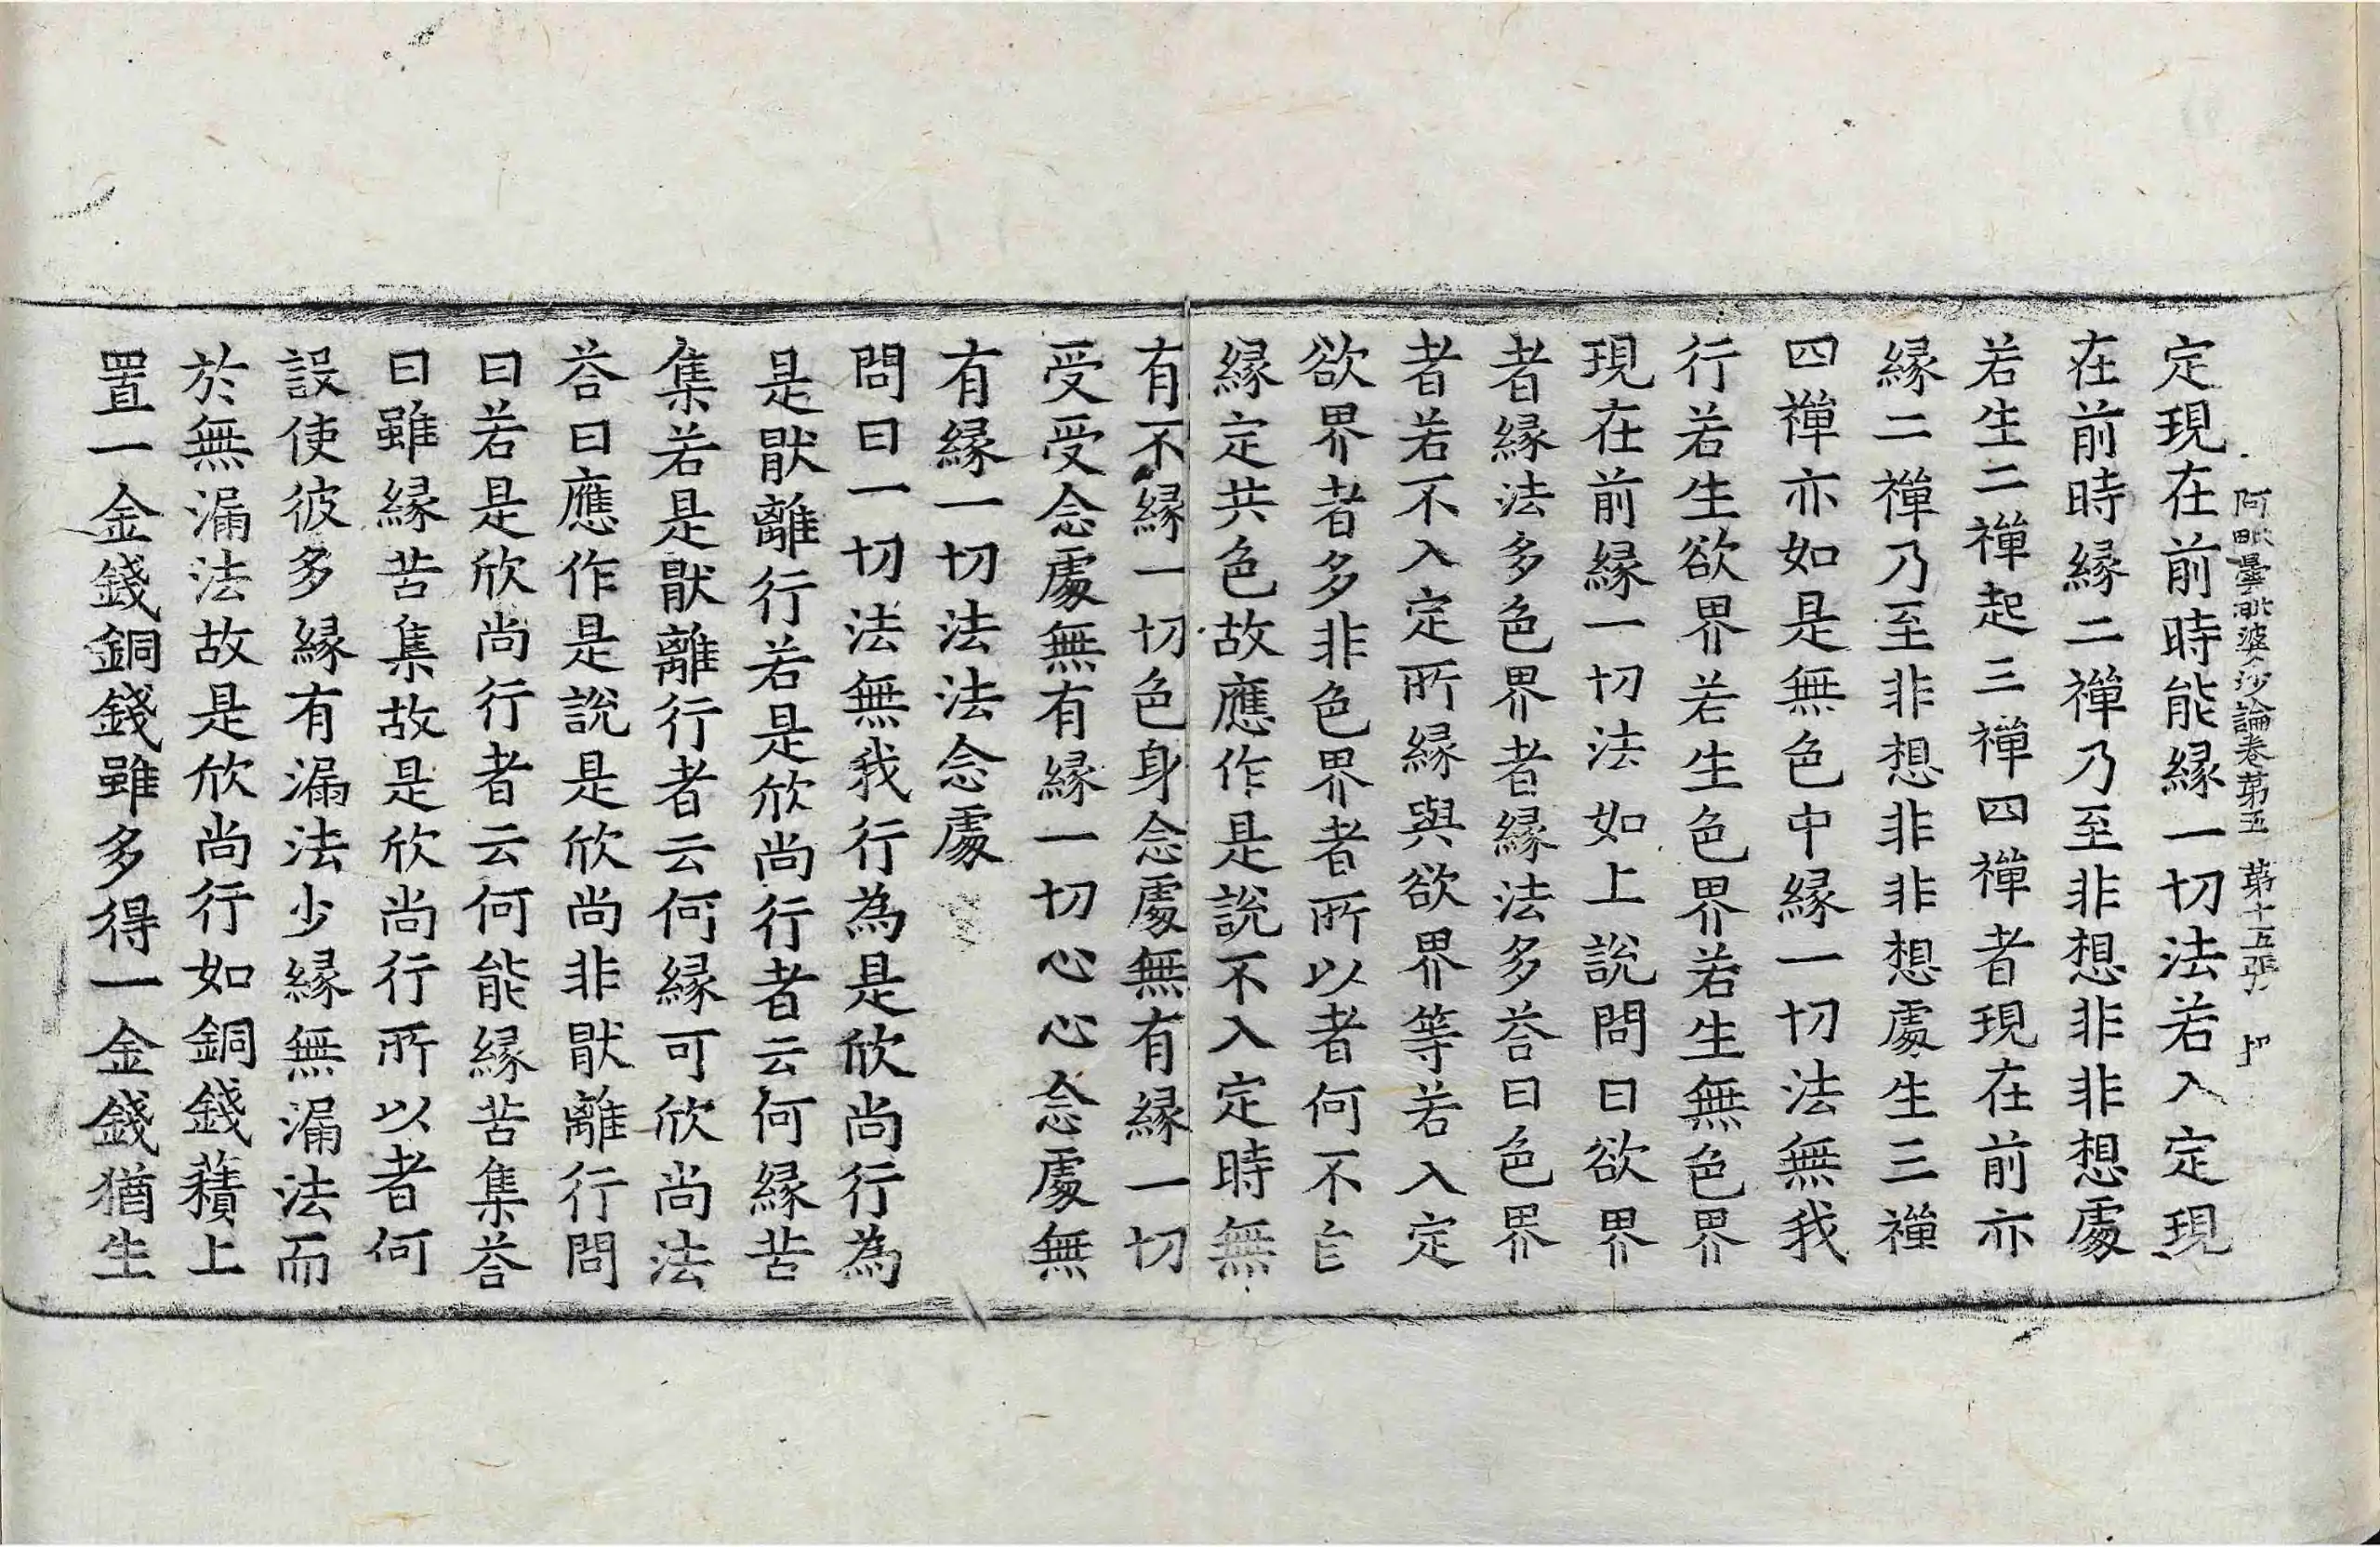 阿毗曇毗婆沙論卷苐五 苐十五張
定現在前時能縁一切法若入定現
在前時縁二禪乃至非想非非想處
若生二禪起三禪四禪者現在前亦
縁二禪乃至非想非非想處生三禪
四禪亦如是無色中縁一切法無我
行若生欲界若生色界若生無色界
現在前縁一切法如上說問曰欲界
者縁法多色界者縁法多荅曰色界
者若不入定所縁與欲界等若入定
欲界者多非色界者所以者何不
縁定共色故應作是說不入定時無
有不縁一切色身念處無有縁一切
受受念處無有縁一切心心念處無
有縁一切法法念處
問曰一切法無我行為是欣尚行為
是猒離行若是欣尚行者云何縁苦
集若是猒離行者云何縁可欣尚法
荅曰應作是說是欣尚非猒離行問
曰若是欣尚行者云何能縁苦集荅
曰雖縁苦集故是欣尚行所以者何
設使彼多縁有漏法少縁無漏法而
於無漏法故是欣尚行如銅錢積上
置一金錢銅錢雖多得一金錢猶生